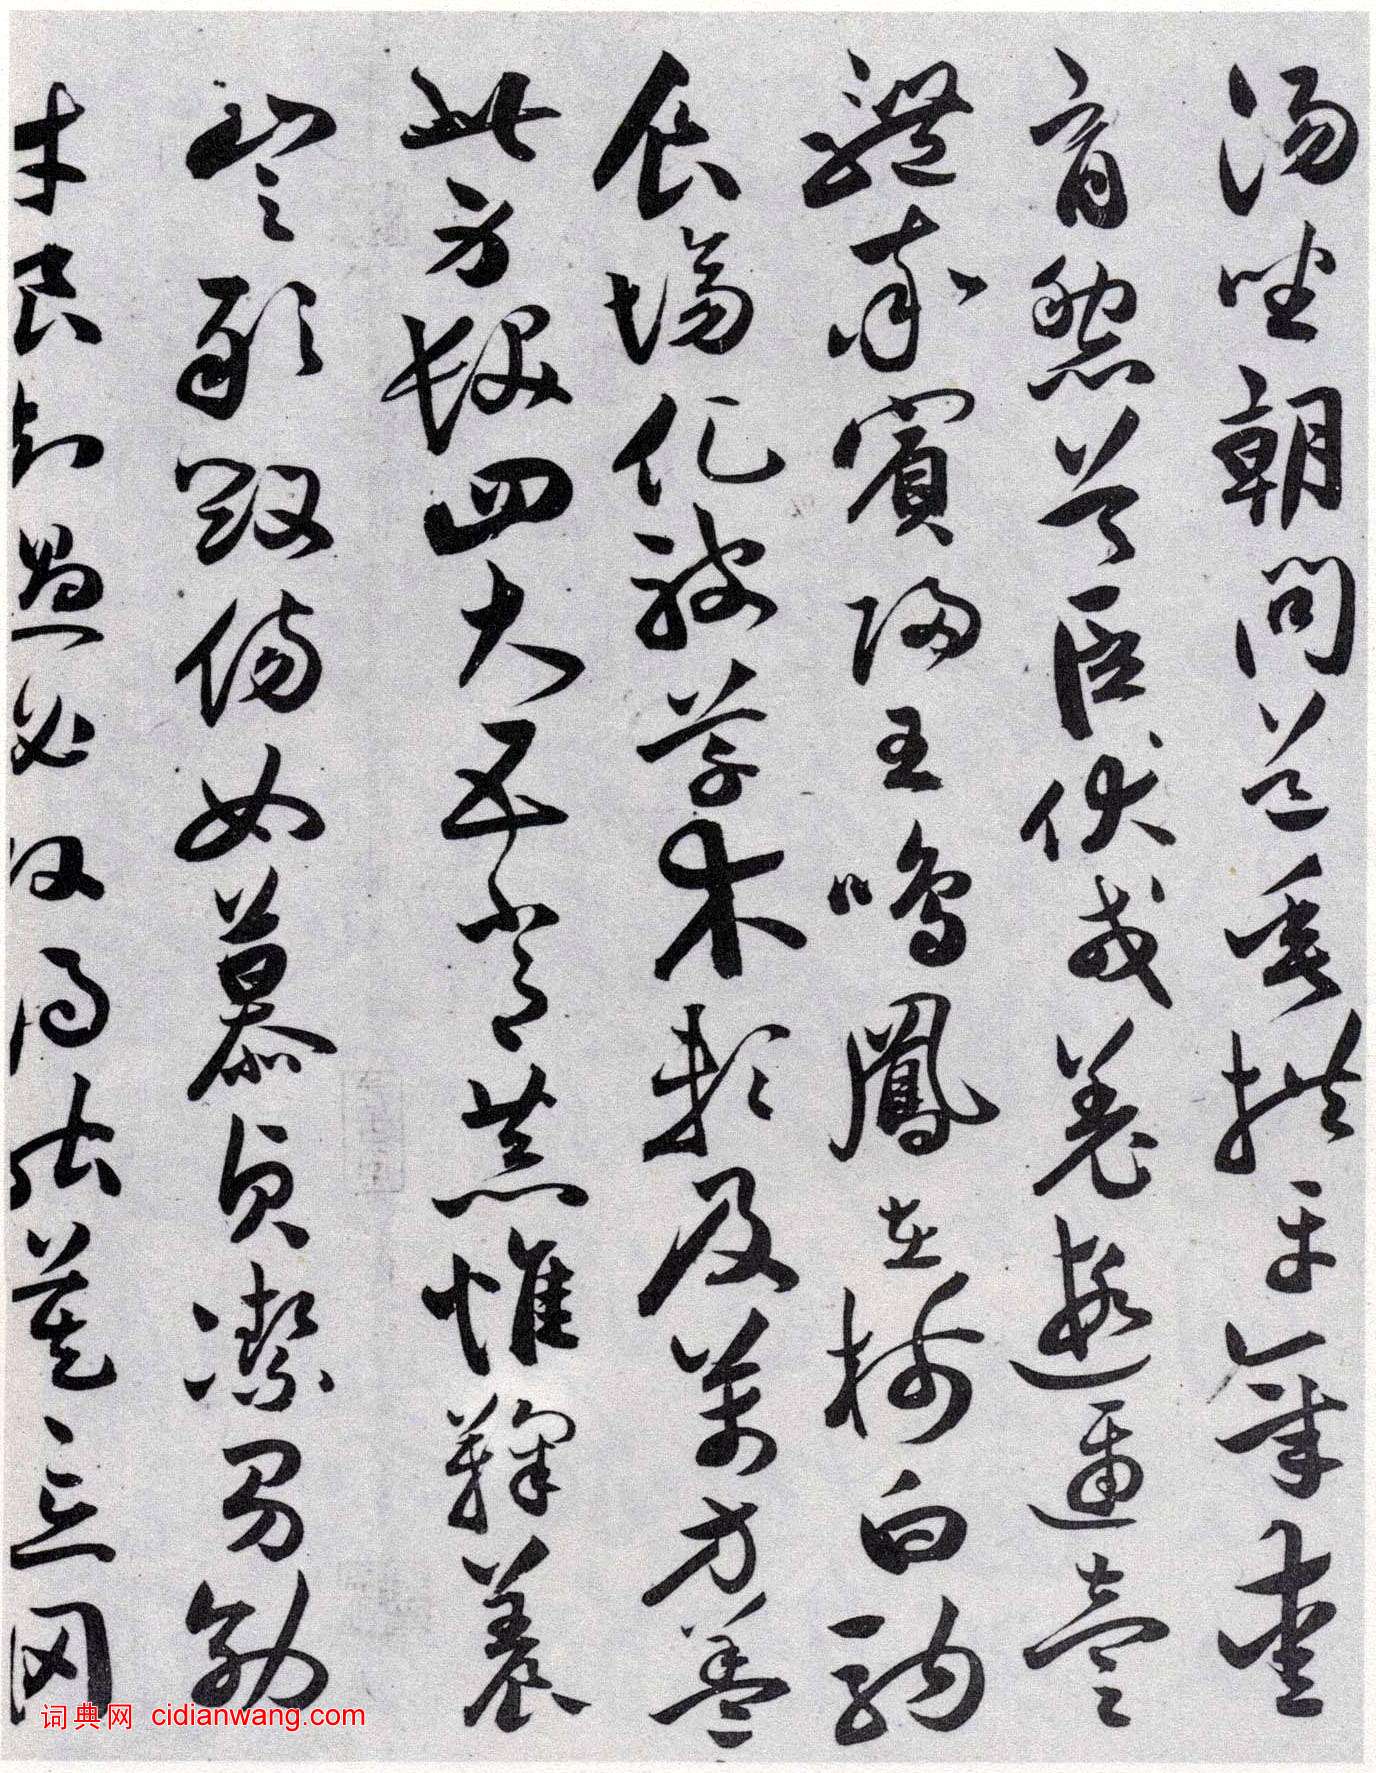 湯坐朝問道垂拱平章愛
育黎首臣伏戎羌遐邇壹
體率賓歸王鳴鳳在樹白駒
食場化被草木賴及萬方蓋
此身髮四大五常恭惟鞠養
豈敢毀傷女慕貞潔男效
才良知過必改得能莫忘罔
词典网 cidianwang.com